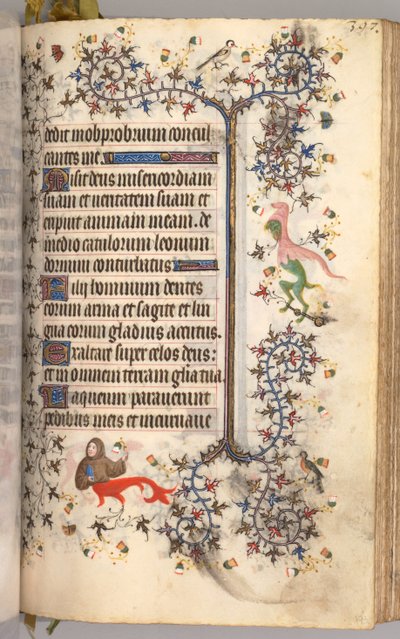 397.
dedit in obprobrium concul
cantes me.
Misit deus misericordiam
suam et veritatem suam et
eripuit animam meam. de
medio catulorum leonum
dormivi conturbatus
Filij hominum dentes
eorum arma et sagite et lin
gua eorum gladius acutus.
Exaltare super celos deus:
et in omnem terram gloria tua.
Laqueum paraverunt
pedibus meis et incurvave